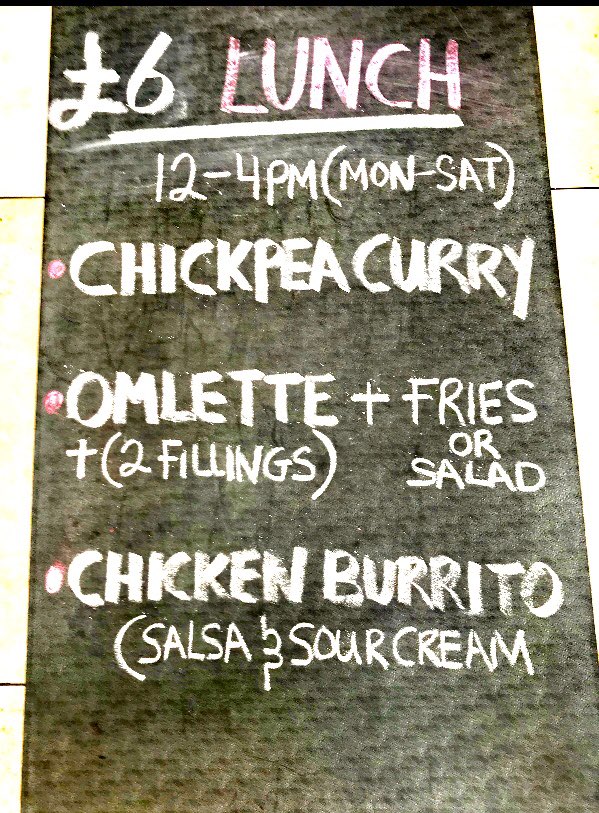 £6 LUNCH
12-4PM (MON-SAT)
• CHICKPEA CURRY
• OMLETTE + FRIES
+ (2 FILLINGS) OR
SALAD
• CHICKEN BURRITO
(SALSA & SOUR CREAM